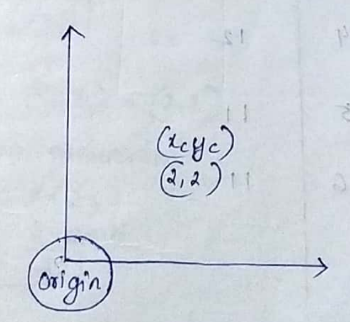 (xcyc)
(2,2)
origin